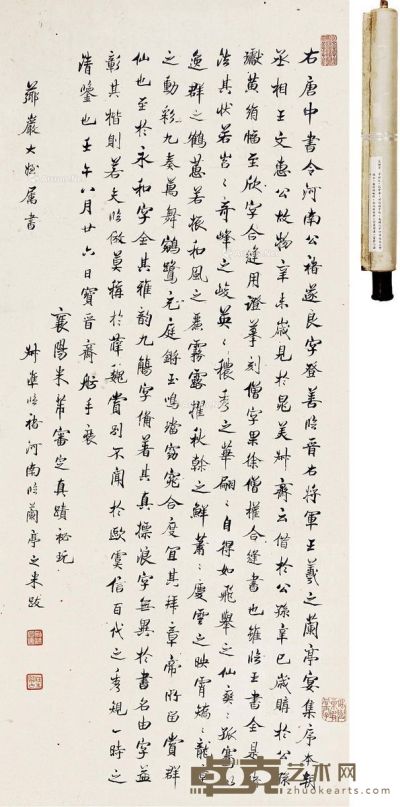 右唐中書令河南公褚遂良字登善臨晉右將軍王羲之蘭亭宴集序本朝
丞相王文惠公故物辛未歲見於晁美叔齋云借於公孫辛巳歲購於公孫
巘黃絹幅至欣字合縫用證摹刻僧字果徐僧權合縫書也雖臨王書全是褚
法其狀若岩〻奇峰之峻英〻穠秀之華翩〻自得如飛舉之仙爽〻孤騫
逸群之鶴蕙若振和風之麗霧露擢秋幹之鮮蕭〻慶雲之映霄矯〻龍章
之動彩九奏萬舞鵷鷺充庭鏘玉鳴璫窈窕合度宜其拜章帝所留賞群
仙也至於永和字全其雅韵九觴字備著其真標浪字無異於書名由字益
彰其楷則若夫臨倣莫稱於薛魏賞別不聞於歐虞信百代之秀規一時之
清鑒也壬午八月廿六日寶晉齋舫手裝
襄陽米芾審定真蹟秘玩
臨褚河南臨蘭亭之米跋
巖大姪屬書
卓克艺术网
zhuokearts.com